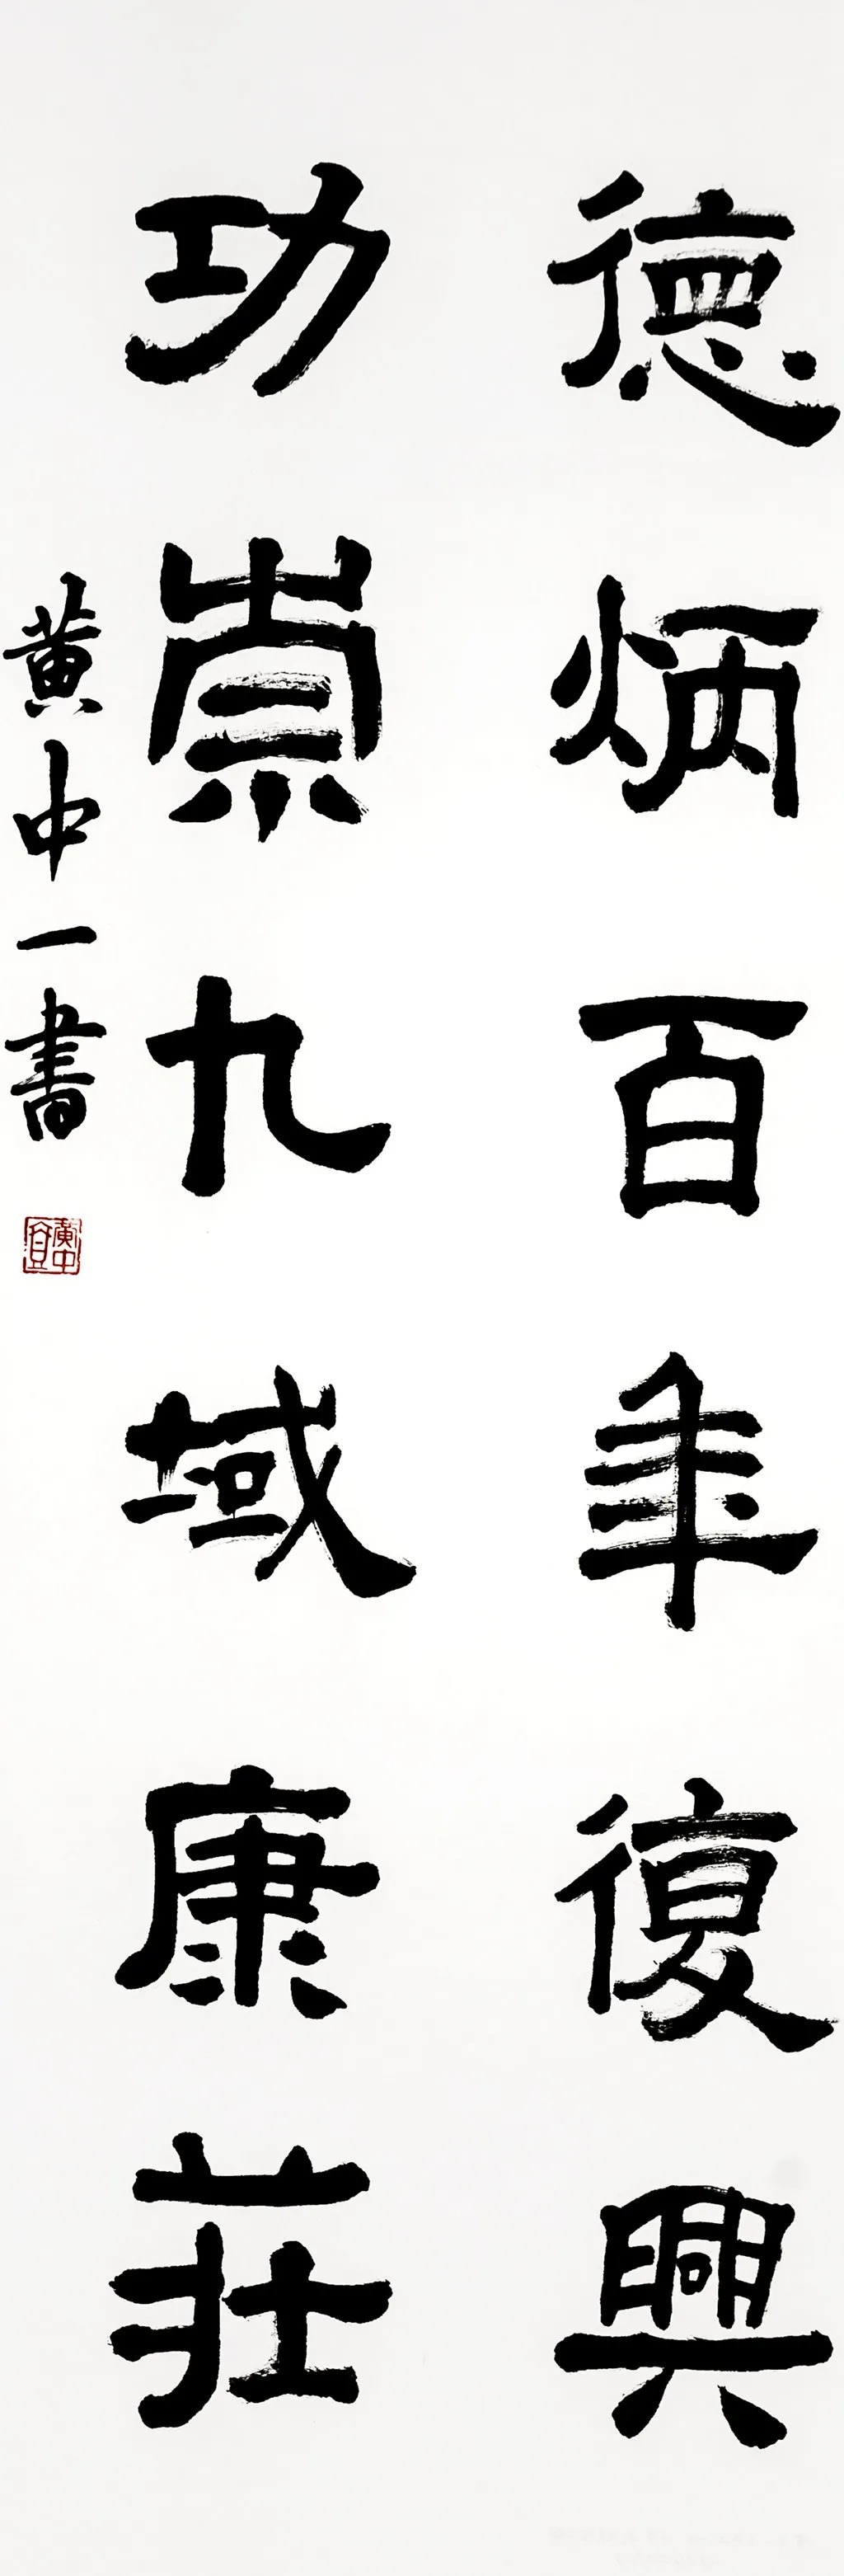 德炳百年復興
功崇九域康莊
黄中一書